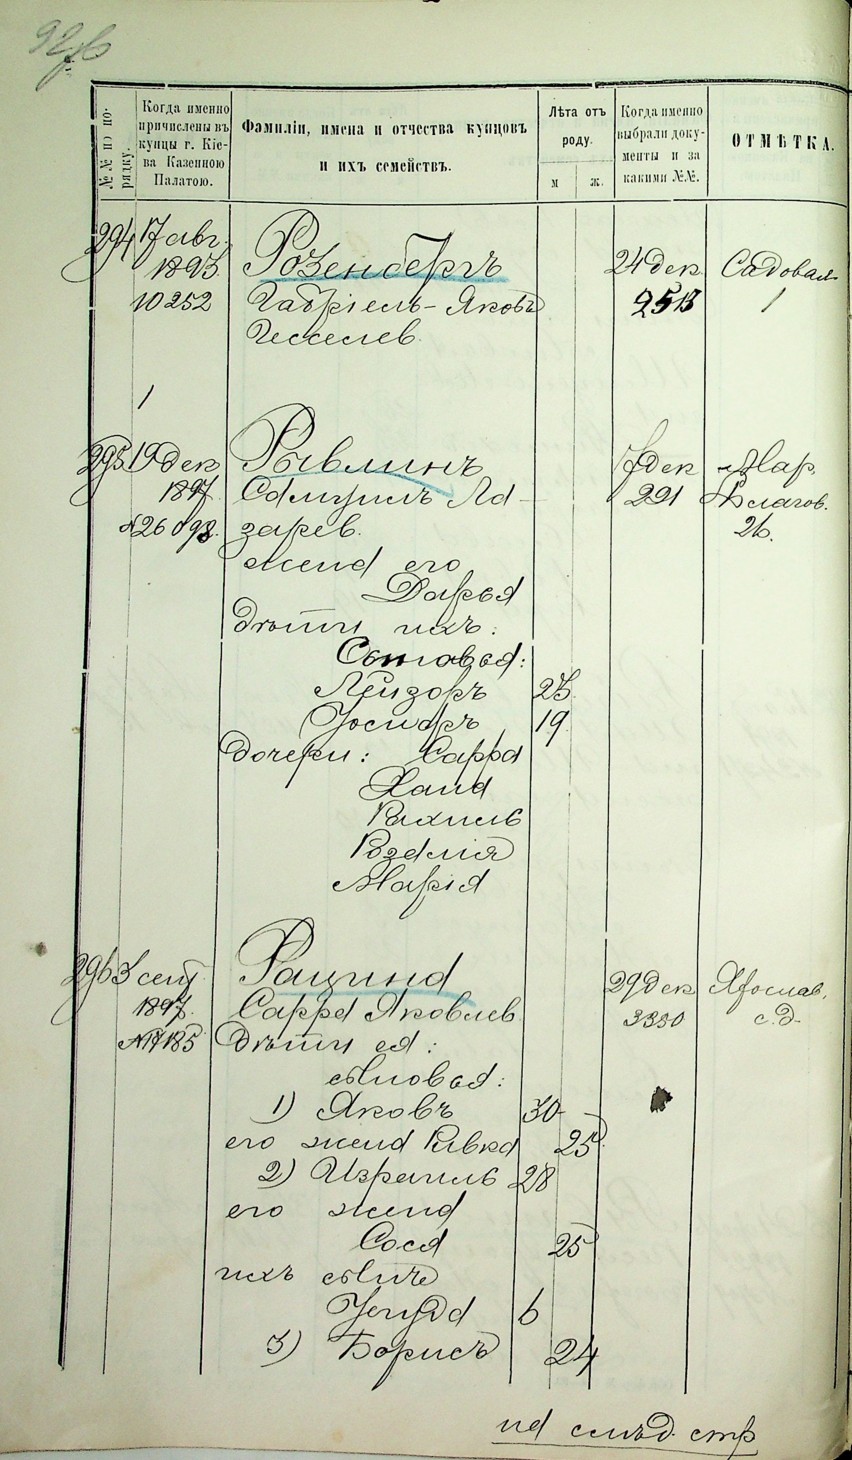 92 об
№№ по по-
рядку.
Когда именно
причислены въ
купцы г. Кіе-
ва Казенною
Палатою.
Фамиліи, имена и отчества купцовъ
и ихъ семействъ.
Лѣта отъ
роду.
м ж.
Когда именно
выбрали доку-
менты и за
какими №№.
ОТМѢТКА.
294 17 авг.
1893 Розенбергъ 24 дек Садовая
10252 Габріель-Яковъ 2513 1
Гесселев.
1
295 19 дек Рывлинъ 17 дек Мар.
1897 Самуилъ Ла- 291 Благов.
№26098. зарев. 26.
жена его
Дарья
дѣти ихъ:
Сыновья:
Лейзоръ 23
Іосифъ 19
Дочери: Сарра
Хана
Рахиль
Розалія
Марія
296 3 сент Рацина 29 дек Ярослав.
1897. Сарра Яковлев 3330 с.д.
№17185 Дѣти ея:
сыновья:
1) Яковъ 30
его жена Ривка 25
2) Израиль 28
его жена
Сося 25
ихъ сынъ
Іегуда 6
3) Борисъ 24
на слѣд. стр